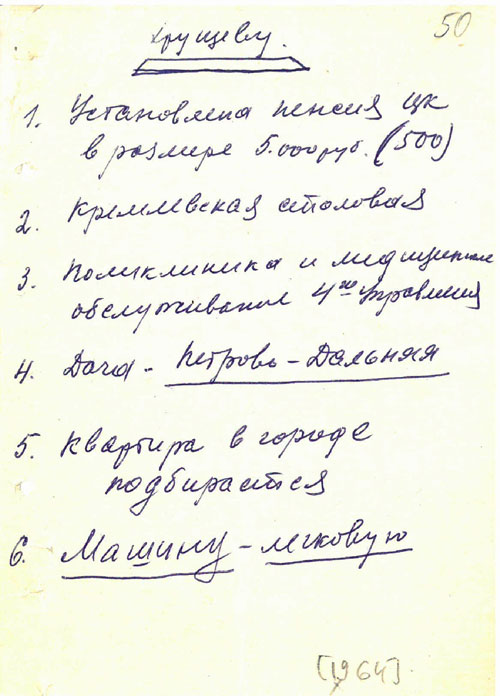 50
Хрущеву.
1. Установлена пенсия ЦК
в размере 5.000 руб. (500)
2. Кремлевская столовая
3. Поликлиника и медицинское
обслуживание 4го управления
4. Дача - Петрово-Дальняя
5. Квартира в городе
подбирается
6. Машину - легковую
[1964].